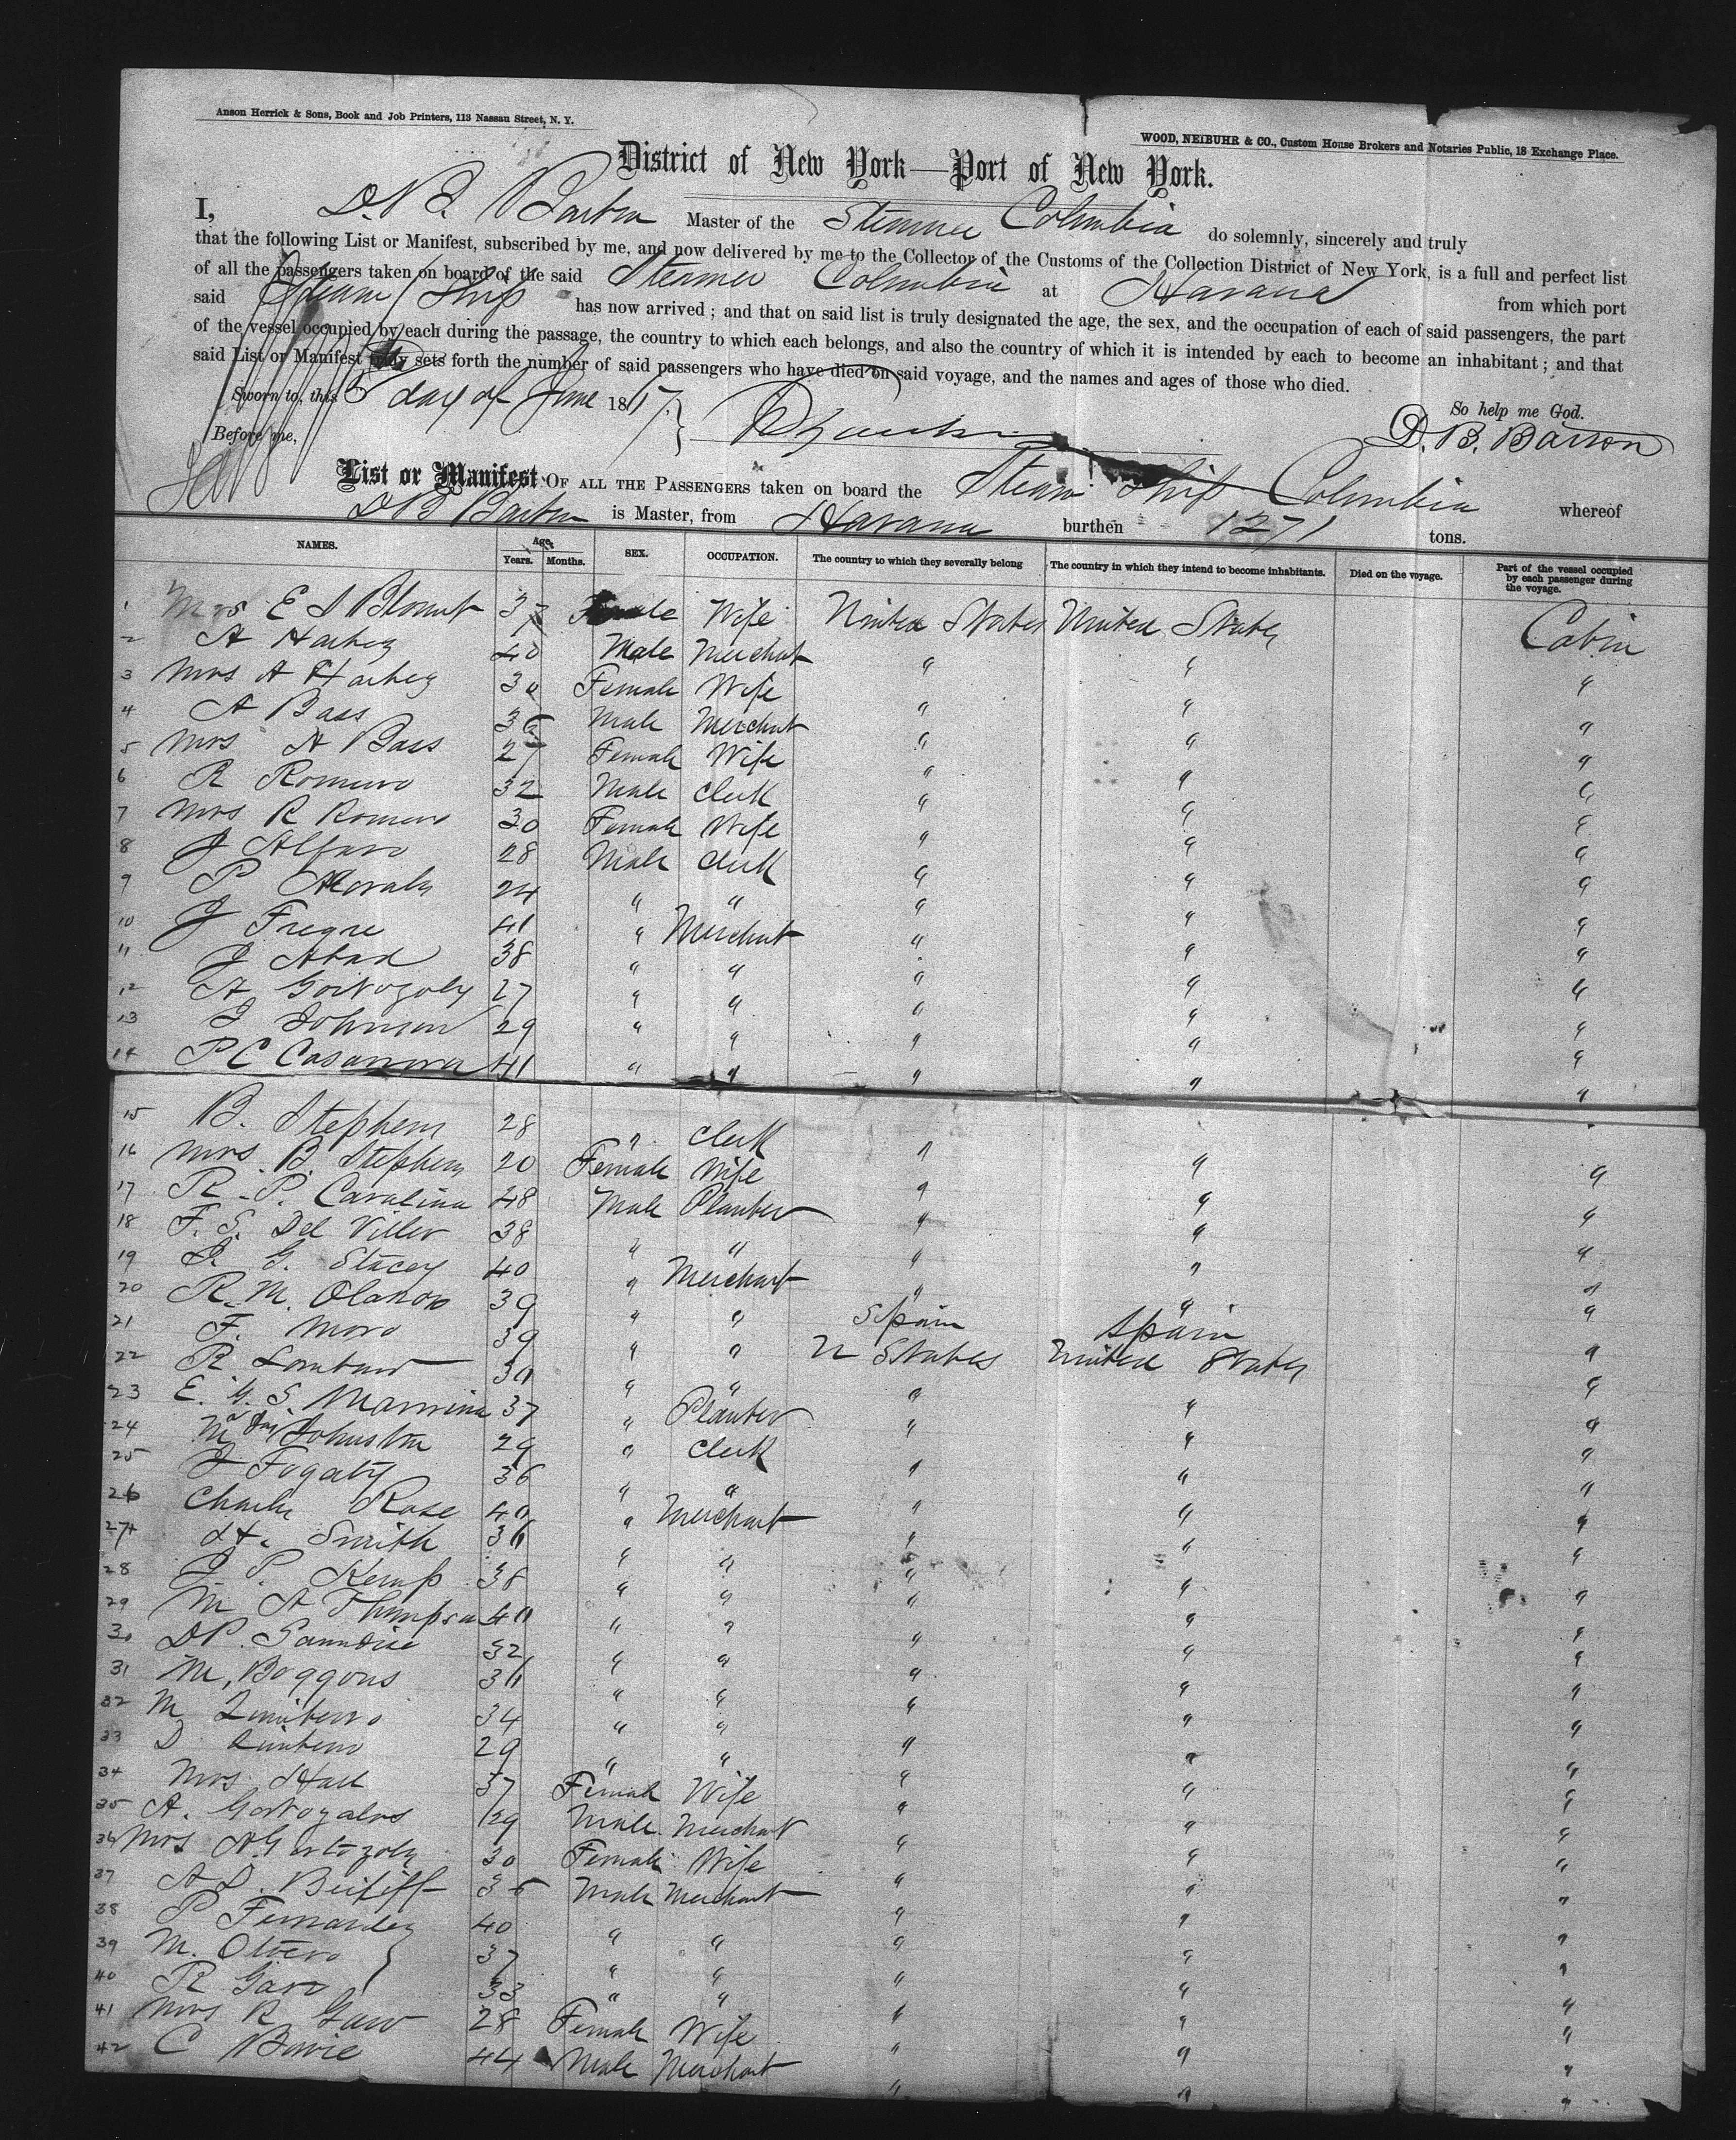 Anson Herrick & Sons, Book and Job Printers, 113 Nassau Street, N. Y.
WOOD, NEIBUHR & CO., Custom House Brokers and Notaries Public, 18 Exchange Place.
District of New York—Port of New York.
I, D. B. Barton Master of the Steamer Columbia do solemnly, sincerely and truly
that the following List or Manifest, subscribed by me, and now delivered by me to the Collector of the Customs of the Collection District of New York, is a full and perfect list
of all the passengers taken on board of the said Steamer Columbia at Havana from which port
said Steam Ship has now arrived; and that on said list is truly designated the age, the sex, and the occupation of each of said passengers, the part
of the vessel occupied by each during the passage, the country to which each belongs, and also the country of which it is intended by each to become an inhabitant; and that
said List or Manifest truly sets forth the number of said passengers who have died on said voyage, and the names and ages of those who died.
Sworn to, this 3 day of June 1867. So help me God.
Before me, D. B. Barton
List or Manifest OF ALL THE PASSENGERS taken on board the Steam Ship Columbia whereof
D B Barton is Master, from Havana burthen 1271 tons.
NAMES. Age. Years. Months. SEX. OCCUPATION. The country to which they severally belong The country in which they intend to become inhabitants. Died on the voyage. Part of the vessel occupied by each passenger during the voyage.
1 Mrs E S Blount 37 Female Wife United States United States Cabin
2 A Harbey 40 Male Merchant " " "
3 Mrs A Harbey 30 Female Wife " " "
4 A Bass 36 Male Merchant " " "
5 Mrs A Bass 27 Female Wife " " "
6 R Romero 32 Male Clerk " " "
7 Mrs R Romero 30 Female Wife " " "
8 J Alfaro 28 Male Clerk " " "
9 P Morales 24 " " " " "
10 J Freyre 41 " Merchant " " "
11 J Abad 38 " " " " "
12 A 27 " " " " "
13 J Johnson 29 " " " " "
14 P C Casanova 41 " " " " "
15 B. Stephens 28 " Clerk " " "
16 Mrs B. Stephens 20 Female Wife " " "
17 R. P. Carolina 48 Male Planter " " "
18 F. S. Del Viller 38 " " " " "
19 G. Stacey 40 " Merchant " " "
20 R. M. 39 " " Spain Spain "
21 F. Moro 39 " " U States United States "
22 R Lombard 30 " " " " "
23 E. 37 " Planter " " "
24 Johnston 29 " Clerk " " "
25 J Fogaty 36 " " " " "
26 Charles Rose 40 " Merchant " " "
27 H. Smith 36 " " " " "
28 J P. Kemp 38 " " " " "
29 M A Thompson 40 " " " " "
30 D P. 32 " " " " "
31 M, Boggons 36 " " " " "
32 M Quintero 34 " " " " "
33 D Quintero 29 " " " " "
34 Mrs Hall 37 Female Wife " " "
35 A. 29 Male Merchant " " "
36 Mrs 30 Female Wife " " "
37 A D. 35 Male Merchant " " "
38 P Fernandez 40 " " " " "
39 M. Otero 37 " " " " "
40 R Garo 33 " " " " "
41 Mrs R Garo 28 Female Wife " " "
42 C 44 Male Merchant " " "